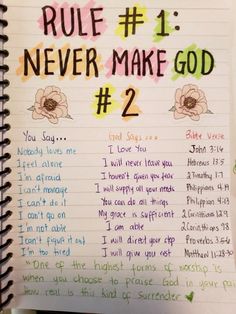 RULE # 1:
NEVER MAKE GOD
# 2
You Say... God Says... Bible Verse
Nobody loves me I Love You John 3:16
I feel alone I will never leave you Hebrews 13:5
I'm afraid I haven't given you fear 2 Timothy 1:7
I can't manage I will supply all your needs Philippians 4:19
I can't do it You can do all things Philippians 4:13
I can't go on My grace is sufficient 2 Corinthians 12:9
I'm not able I am able 2 Corinthians 9:8
I can't figure it out I will direct your step Proverbs 3:5-6
I'm too tired I will give you rest Matthew 11:28-30
"One of the highest forms of worship is
when you choose to praise God in your pain
how real is this kind of surrender